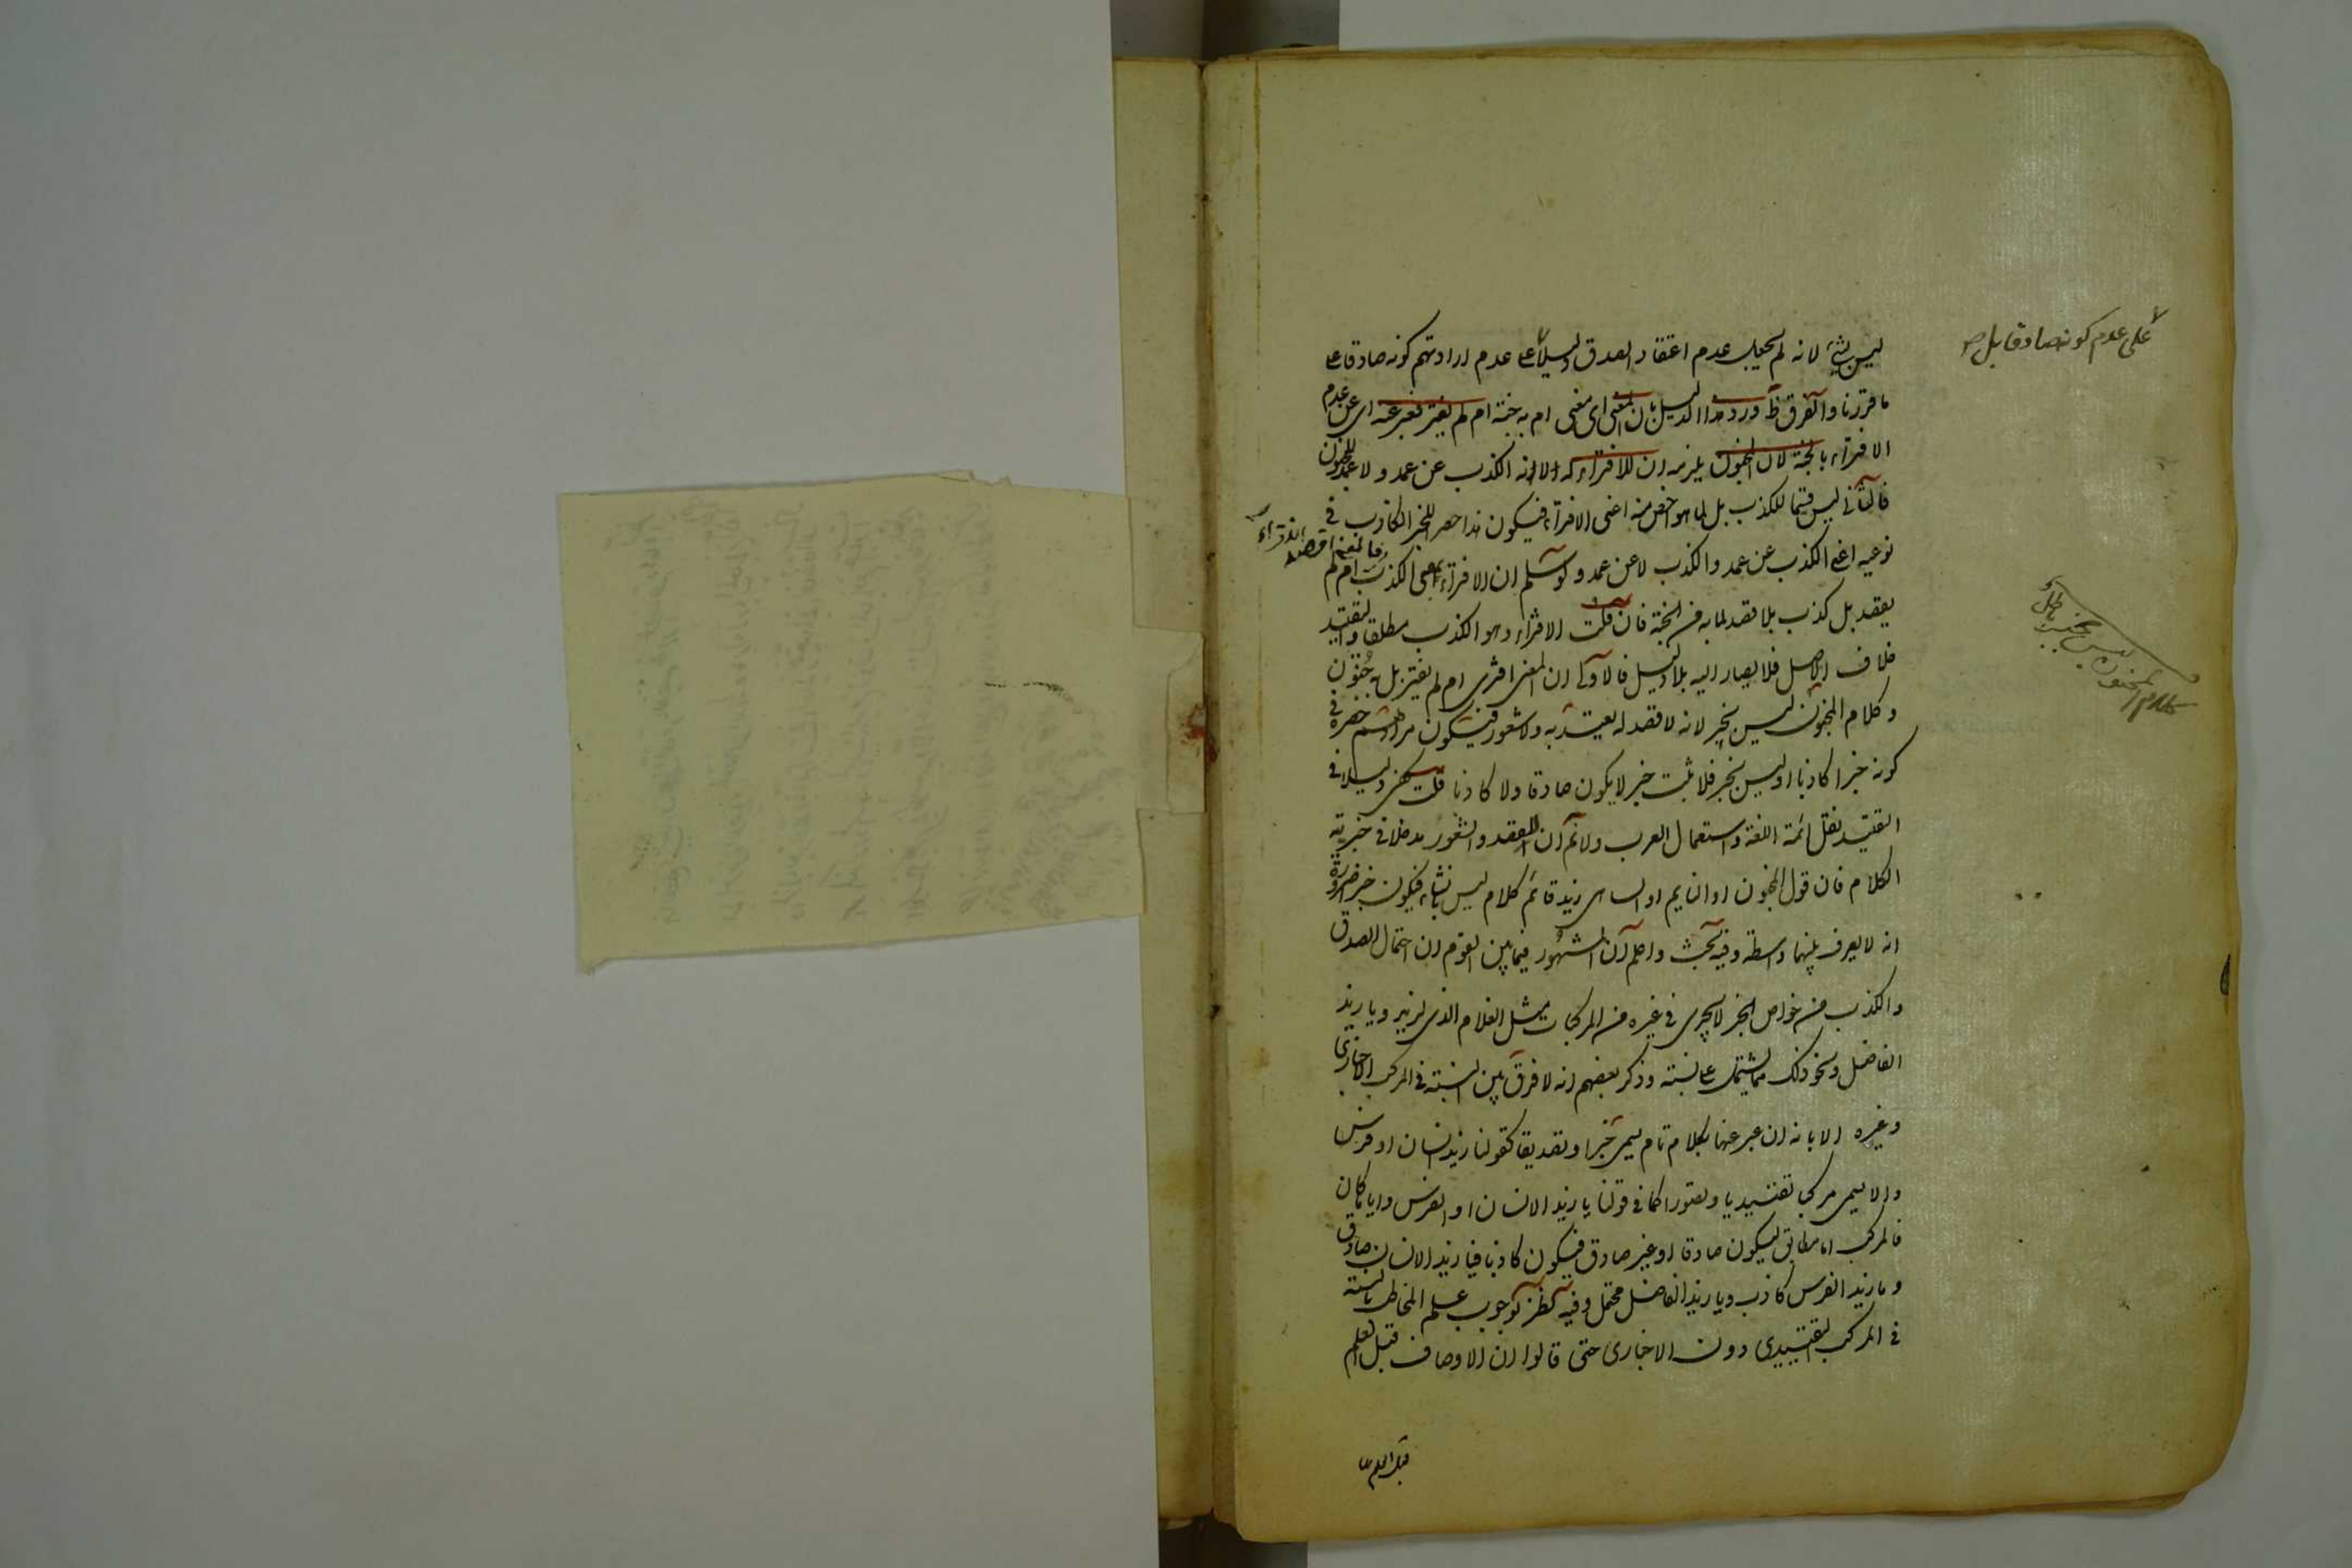 ليس بشئ لانه لم يجعل عدم اعتقاد الصدق دليلا على عدم ارادتهم كونه صادقا على
ما قررنا والفرق ظ ورد هذا الدليل بان المعنى اى معنى ام به جنة ام لم يفتر فعبر عنه اى عن عدم
الافتراء بالجنة لان المجنون يلزمه ان لا افتراء له لانه الكذب عن عمد ولا عمد للمجنون
فالثانى ليس قسما للكذب بل لما هو اخص منه اعنى الافتراء فيكون هذا حصر للخبر الكاذب فى
نوعيه اعنى الكذب عن عمد والكذب لا عن عمد ولو سلم ان الافتراء بمعنى الكذب فالمعنى اقصد الافتراء ام لم
يقصد بل كذب بلا قصد لما به من الجنة فان قلت الافتراء هو الكذب مطلقا والتقييد
خلاف الاصل فلا يصار اليه بلا دليل فالاولى ان المعنى افترى ام لم يفتر بل به جنون
وكلام المجنون ليس بخبر لانه لا قصد له يعتد به ولا شعور فيكون مرادهم حصره فى
كونه خبرا كاذبا او ليس بخبر فلا يثبت خبر لا يكون صادقا ولا كاذبا قلت كفى دليلا فى
التقييد نقل ائمة اللغة واستعمال العرب ولا نم ان للقصد والشعور مدخلا فى خبرية
الكلام فان قول المجنون او النايم او الساهى زيد قائم كلام ليس بانشاء فيكون خبرا ضرورة
انه لا يعرف بينهما واسطة وفيه بحث واعلم ان المشهور فيما بين القوم ان احتمال الصدق
والكذب من خواص الخبر لا يجرى فى غيره من المركبات مثل الغلام الذى لزيد ويا زيد
الفاضل ونحو ذلك مما يشتمل على نسبة وذكر بعضهم انه لا فرق بين النسبة فى المركب الاخبارى
وغيره الا بانه ان عبر عنها بكلام تام يسمى خبرا وتصديقا كقولنا زيد انسان او فرس
والا يسمى مركبا تقييديا وتصورا كما فى قولنا يا زيد الانسان او الفرس وايا ما كان
فالمركب اما مطابق ليكون صادقا او غير صادق فيكون كاذبا فيا زيد الانسان صادق
ويا زيد الفرس كاذب ويا زيد الفاضل محتمل وفيه نظر لوجوب علم المخاطب بالنسبة
فى المركب التقييدى دون الاخبارى حتى قالوا ان الاوصاف قبل العلم
قبل العلم
على عدم كونه صادقا بل
كلام المجنون ليس بخبر